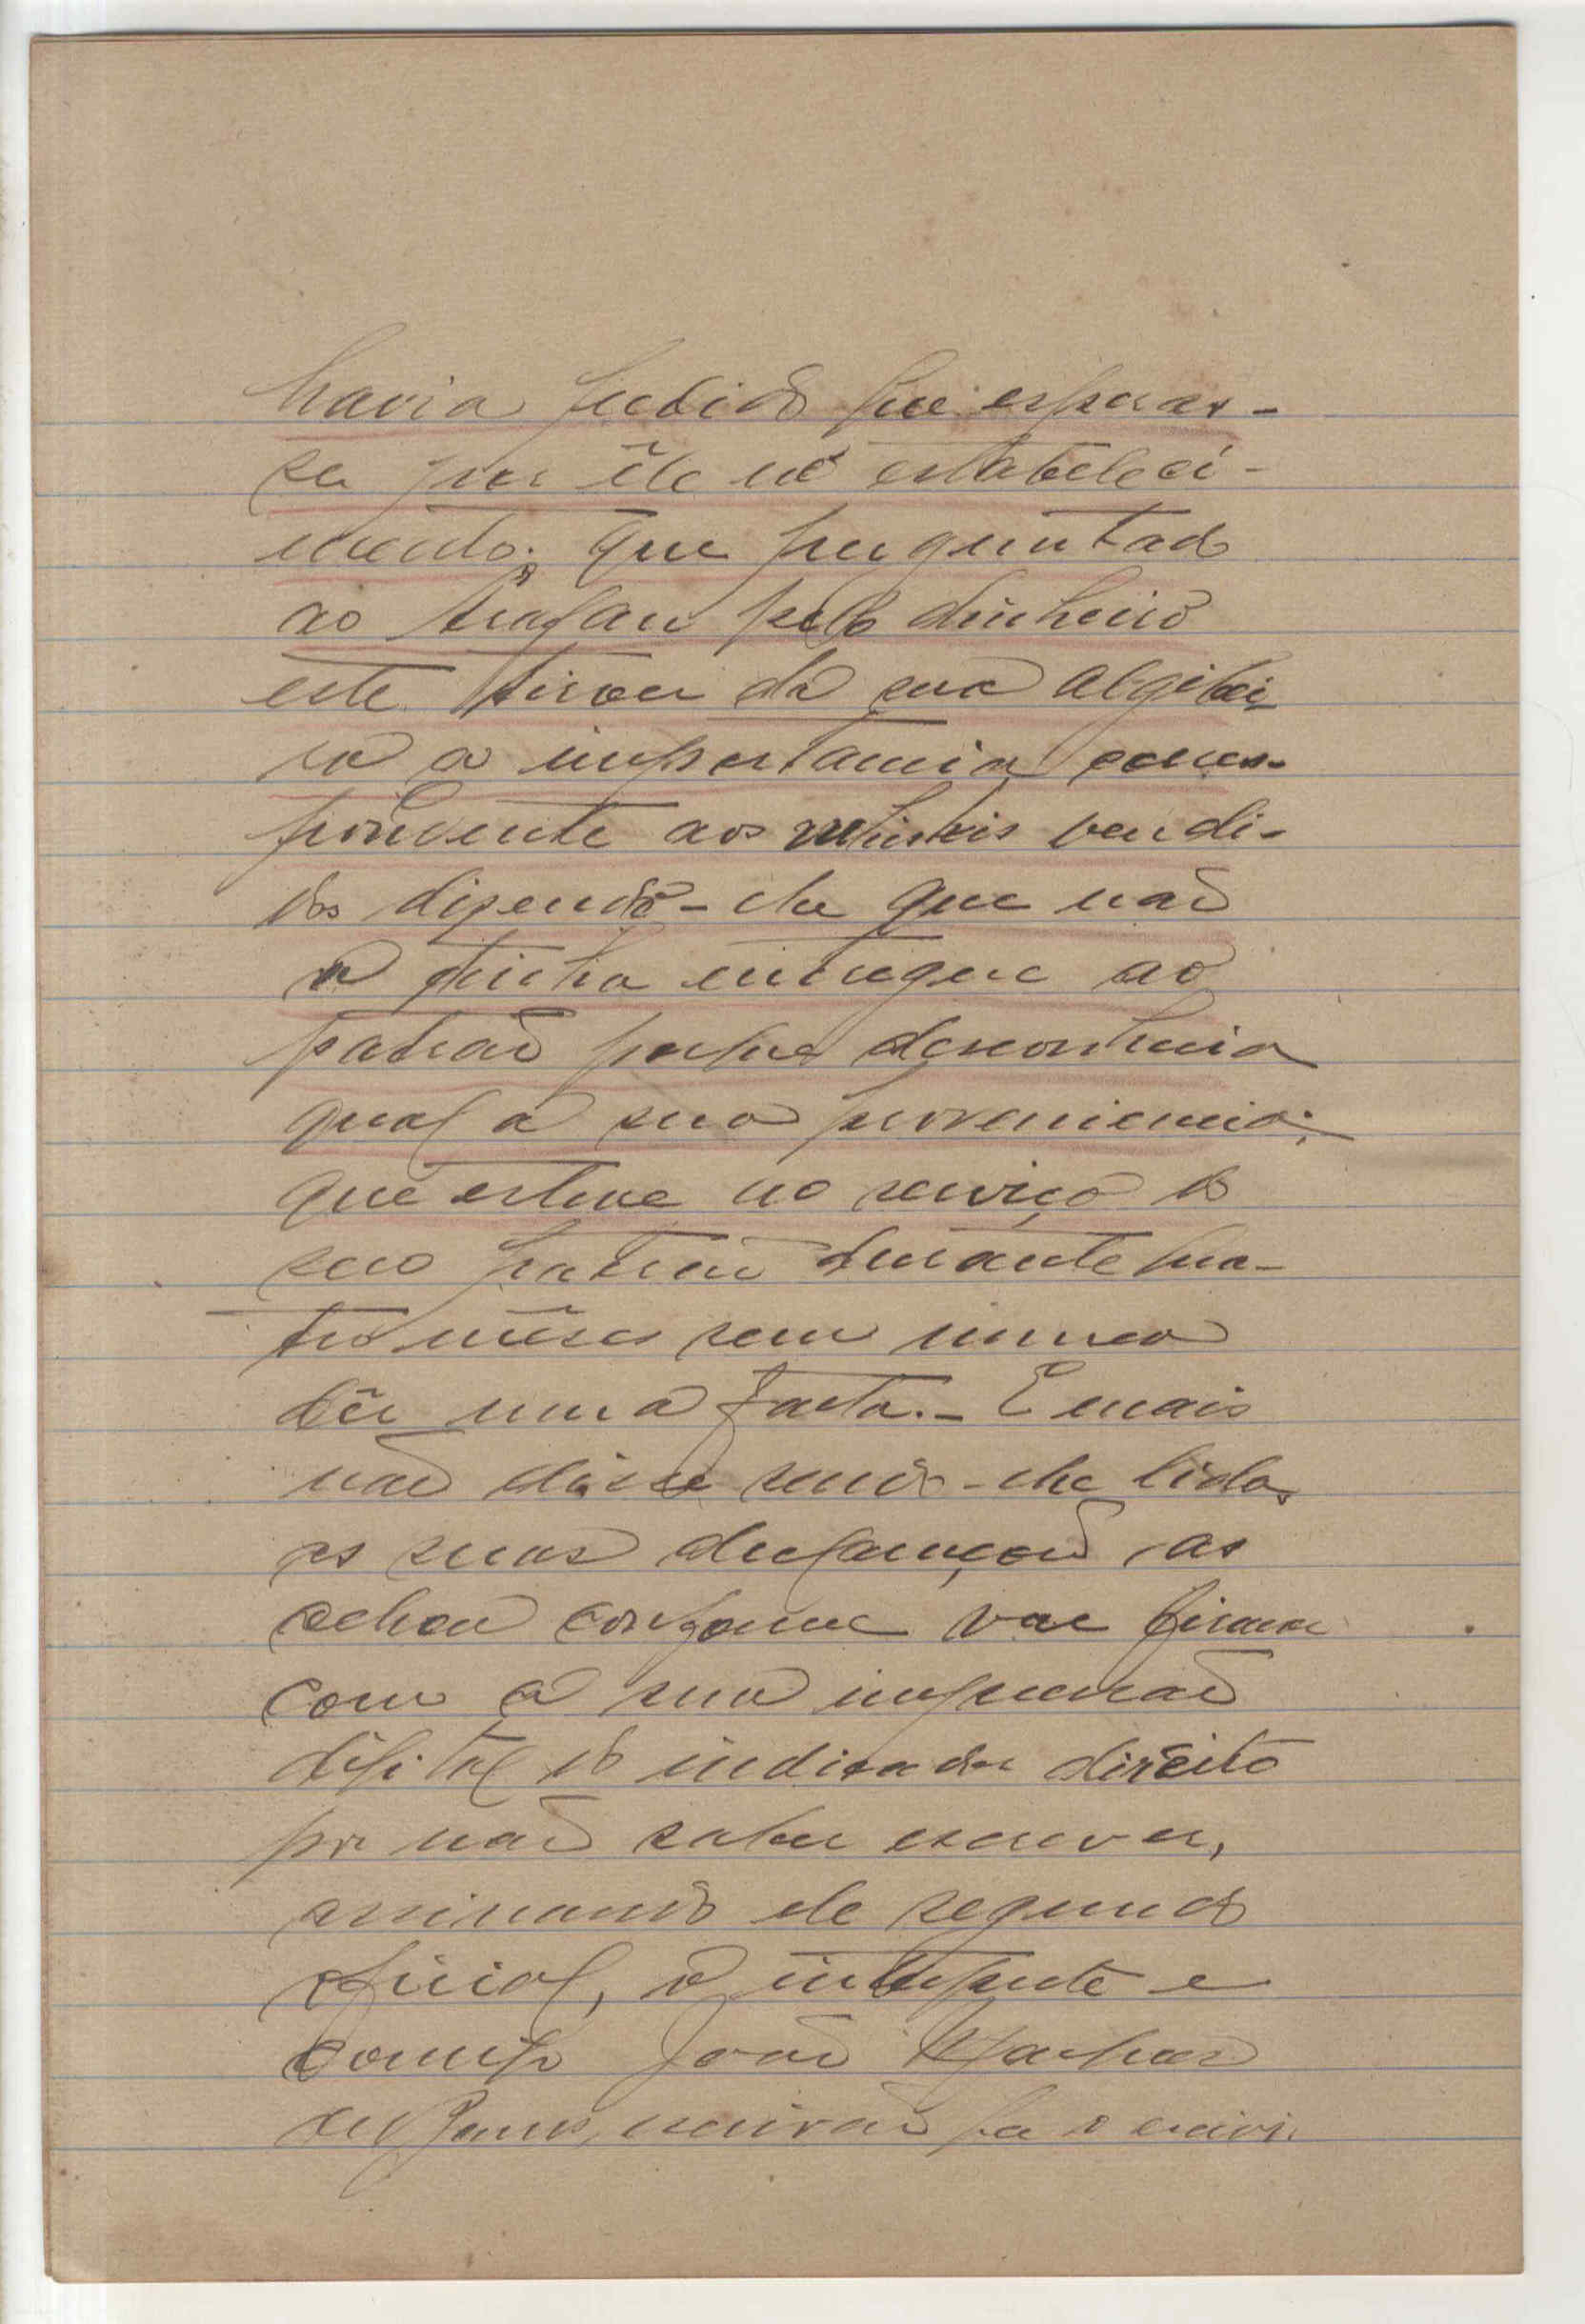 havia pedido que esperas-
se por êle no estabeleci-
mento; que perguntado
ao pelo dinheiro
este tirou da sua algibei
ra a importancia corres-
pondente aos vendi-
dos dizendo-lhe que não
a tinha entregue ao
patrão porque desconhecia
qual a sua proveniencia;
que esteve no serviço do
seu patrão durante qua-
tro mêses sem nunca
dêr uma falta.- E mais
não disse sendo-lhe lidas
as suas declarações as
achou conforme vae firmar
com a sua impressão
digital do indicador direito
por não saber escrever,
assinando ele segundo
oficial, o interprete e
comigo João
escrivão que o escrevi.